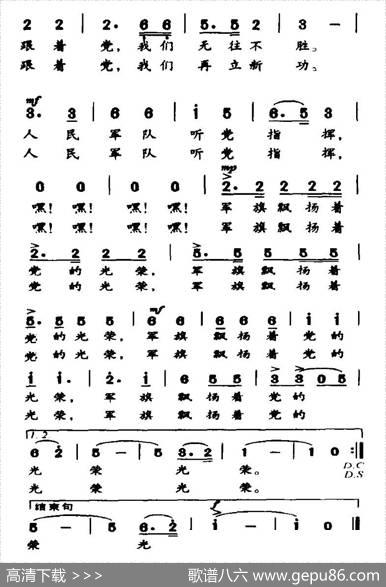 2 2 | 2. 6 6 | 5. 5 2 | 3 — |
跟着 党, 我们 无往不 胜。
跟着 党, 我们 再立新 功。
mf
3. 3 | 6 6 | i 5 | 6. 5 3 |
人民 军队 听党 指挥,
人民 军队 听党 指挥,
mp
0 0 | 0 0 | 2. 2 2 2 2 |
嘿! 嘿! 嘿! 嘿! 军旗飘扬着
嘿! 嘿! 嘿! 嘿! 军旗飘扬着
2. 2 2 2 | 5. 5 5 5 5 |
党的光荣, 军旗飘扬着
党的光荣, 军旗飘扬着
mf
5. 5 5 5 | 6 6 | 6 6 6 | i i |
党的光荣, 军旗 飘扬着 党的
党的光荣, 军旗 飘扬着 党的
i i. | 2. i | 6 5 5 | 3 3 0 5 |
光荣, 军旗 飘扬着 党的
光荣, 军旗 飘扬着 党的
1.2
6 2 | 5 — | 5 3. 2 | 1 — | 1 0 :||
光 荣 光 荣。 D.C
光 荣 光 荣。 D.S
结束句
5 — | 5 6. 2 | i — | i 0 ||
荣 光
高清下载 >>> 歌谱八六 www.gepu86.com